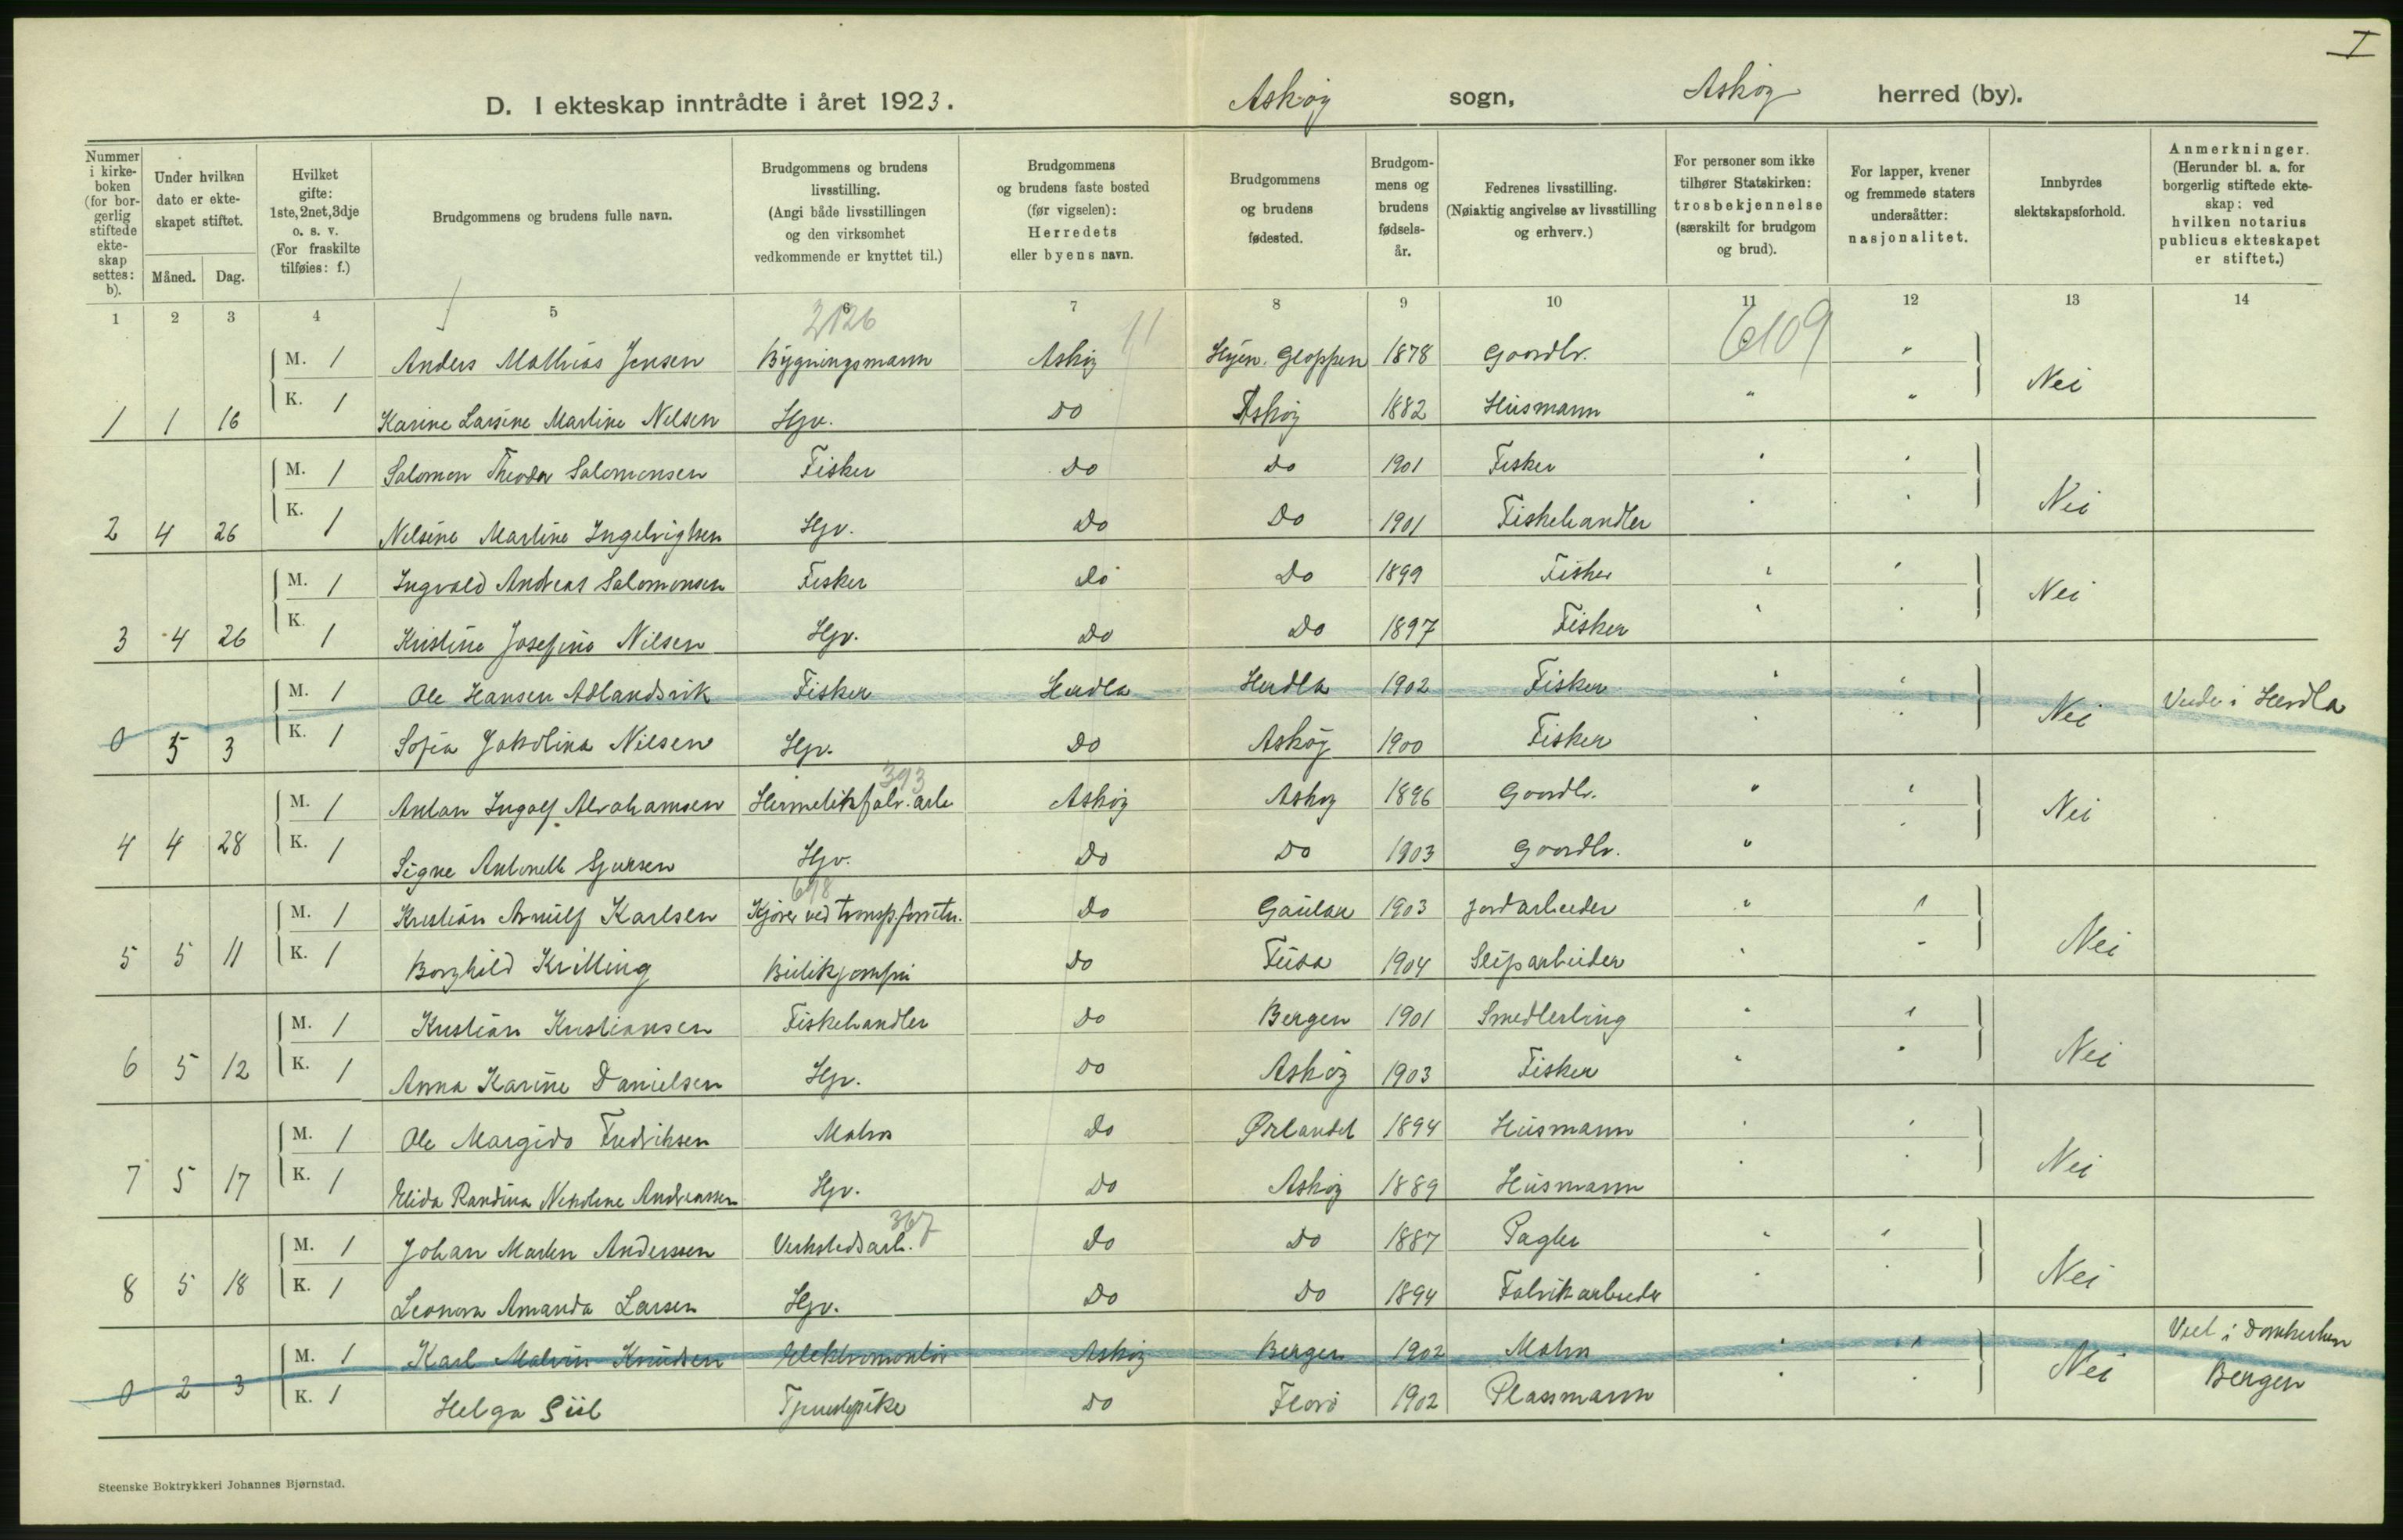 I
D. I ekteskap inntrådte i året 1923. Askøy sogn, Askøy herred (by).
Nummer i kirkeboken (for borgerlig stiftede ekteskap settes: b).
Under hvilken dato er ekteskapet stiftet.
Måned. Dag.
Hvilket gifte: 1ste, 2net, 3dje o. s. v. (For fraskilte tilføies: f.)
Brudgommens og brudens fulle navn.
Brudgommens og brudens livsstilling. (Angi både livsstillingen og den virksomhet vedkommende er knyttet til.)
Brudgommens og brudens faste bosted (før vigselen): Herredets eller byens navn.
Brudgommens og brudens fødested.
Brudgommens og brudens fødselsår.
Fedrenes livsstilling. (Nøiaktig angivelse av livsstilling og erhverv.)
For personer som ikke tilhører Statskirken: trosbekjennelse (særskilt for brudgom og brud).
For lapper, kvener og fremmede staters undersåtter: nasjonalitet.
Innbyrdes slektskapsforhold.
Anmerkninger. (Herunder bl. a. for borgerlig stiftede ekteskap: ved hvilken notarius publicus ekteskapet er stiftet.)
1 2 3 4 5 6 7 8 9 10 11 12 13 14
2126 11 6109
M. 1 Anders Mathias Jensen Bygningsmann Askøy Hyen. Gloppen 1878 Gaardbr. " Nei
1 1 16 K. 1 Karine Larsine Martine Nilsen Hjv. Do Askøy 1882 Husmann " "
M. 1 Salomon Theodor Salomonsen Fisker Do Do 1901 Fisker " " Nei
2 4 26 K. 1 Nelsine Martine Ingebrigtsen Hjv. Do Do 1901 Fiskehandler " "
M. 1 Ingvald Andreas Salomonsen Fisker Do Do 1899 Fisker " " Nei
3 4 26 K. 1 Kristine Josefine Nilsen Hjv. Do Do 1897 Fisker " "
M. 1 Ole Hansen Ådlandsvik Fisker Herdla Herdla 1902 Fisker " " Nei Viede i Herdla
0 5 3 K. 1 Sofia Jakolina Nilsen Hjv. Do Askøy 1900 Fisker " "
393
M. 1 Anton Ingolf Abrahamsen Hermetikfabr. arb Askøy Askøy 1896 Gaardbr. " " Nei
4 4 28 K. 1 Signe Antonette Gjersen Hjv. Do Do 1903 Gaardbr. " "
698
M. 1 Kristian Arnulf Karlsen Kjører ved transp.forretn. Do Gaular 1903 Jordarbeider " " Nei
5 5 11 K. 1 Borghild Kvilling Butikjomfru Do Fusa 1904 Sliparbeider " "
M. 1 Kristian Kristiansen Fiskehandler Do Bergen 1901 Smedlerling " " Nei
6 5 12 K. 1 Anna Karine Danielsen Hjv. Do Askøy 1903 Fisker " "
M. 1 Ole Margido Fredriksen Matros Do Ørlandet 1894 Husmann " " Nei
7 5 17 K. 1 Elida Randina Nekoline Andreassen Hjv. Do Askøy 1889 Husmann " "
367
M. 1 Johan Martin Anderssen Verkstedsarb. Do Do 1887 " " Nei
8 5 18 K. 1 Leonora Amanda Larsen Hjv. Do Do 1894 Fabrikarbeider " "
M. 1 Karl Malvin Knudsen Elektromontør Askøy Bergen 1902 Matros " " Nei Viet i Domkirken Bergen
0 2 3 K. 1 Helga Siil Tjenestepike Do Florø 1902 Plassmann " "
Steenske Boktrykkeri Johannes Bjørnstad.